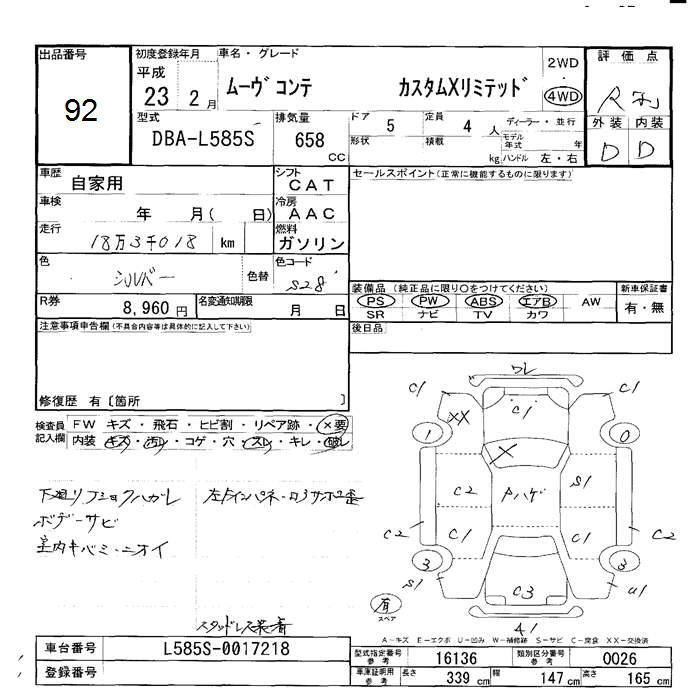 出品番号
92
初度登録年月
平成
23 2 月
車名・グレード
ムーヴ コンテ カスタムXリミテッド
2WD
4WD
評 価 点
R
外装 内装
D D
型式
DBA-L585S
排気量
658
CC
ドア
5
形状
定員
4 人
積載
kg
ディーラー・並行
モデル年式 年
ハンドル 左・右
車歴
自家用
シフト
CAT
セールスポイント(正常に機能するものに限ります)
車検
年 月( 日)
冷房
AAC
走行
18万3千018 km
燃料
ガソリン
色
シルバー
色替
色コード
S28
装備品 (純正品に限り○をつけてください)
PS PW ABS エアB AW
SR ナビ TV カワ
新車保証書
有・無
R券
8,960 円
名変通知期限
月 日
後日品
注意事項申告欄(不具合内容等は具体的に記入して下さい)
修復歴 有〔箇所 〕
検査員記入欄
FW キズ・飛石・ヒビ割・リペア跡・×要
内装 キズ・汚レ・コゲ・穴・スレ・キレ・破レ
ボデーサビ
室内キバミ・ニオイ
スタッドレス装着
ワレ
C1 C1
XX C1
1 0
X
C2 Pハゲ S1
C2 C1 C1 C2
3 3
S1 C3 U1
有
スペア
A1
A-キズ E-エクボ U-凹み W-補修跡 S-サビ C-腐食 XX-交換済
車台番号
L585S-0017218
登録番号
型式指定番号
参考
16136
類別区分番号
参考
0026
車庫証明用
参考
長さ
339 cm
幅
147 cm
高さ
165 cm